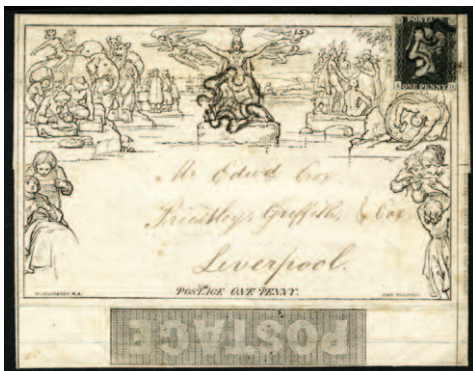 POSTAGE
ONE PENNY
Mr Edwd Cox
Priestley, Griffith, & Cox
Liverpool.
POSTAGE ONE PENNY.
POSTAGE